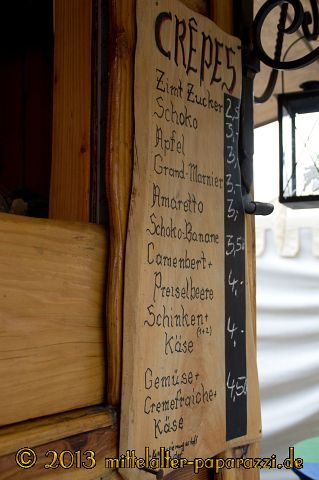 CRÊPES
Zimt Zucker 2,5
Schoko 3,-
Apfel 3,-
Grand-Marnier 3,-
Amaretto 3,-
Schoko-Banane 3,50
Camembert + 4,-
Preiselbeere
Schinken + 4,-
(1+2)
Käse
Gemüse + 4,50
Cremefraiche +
Käse
© 2013 mittelalter-paparazzi.de